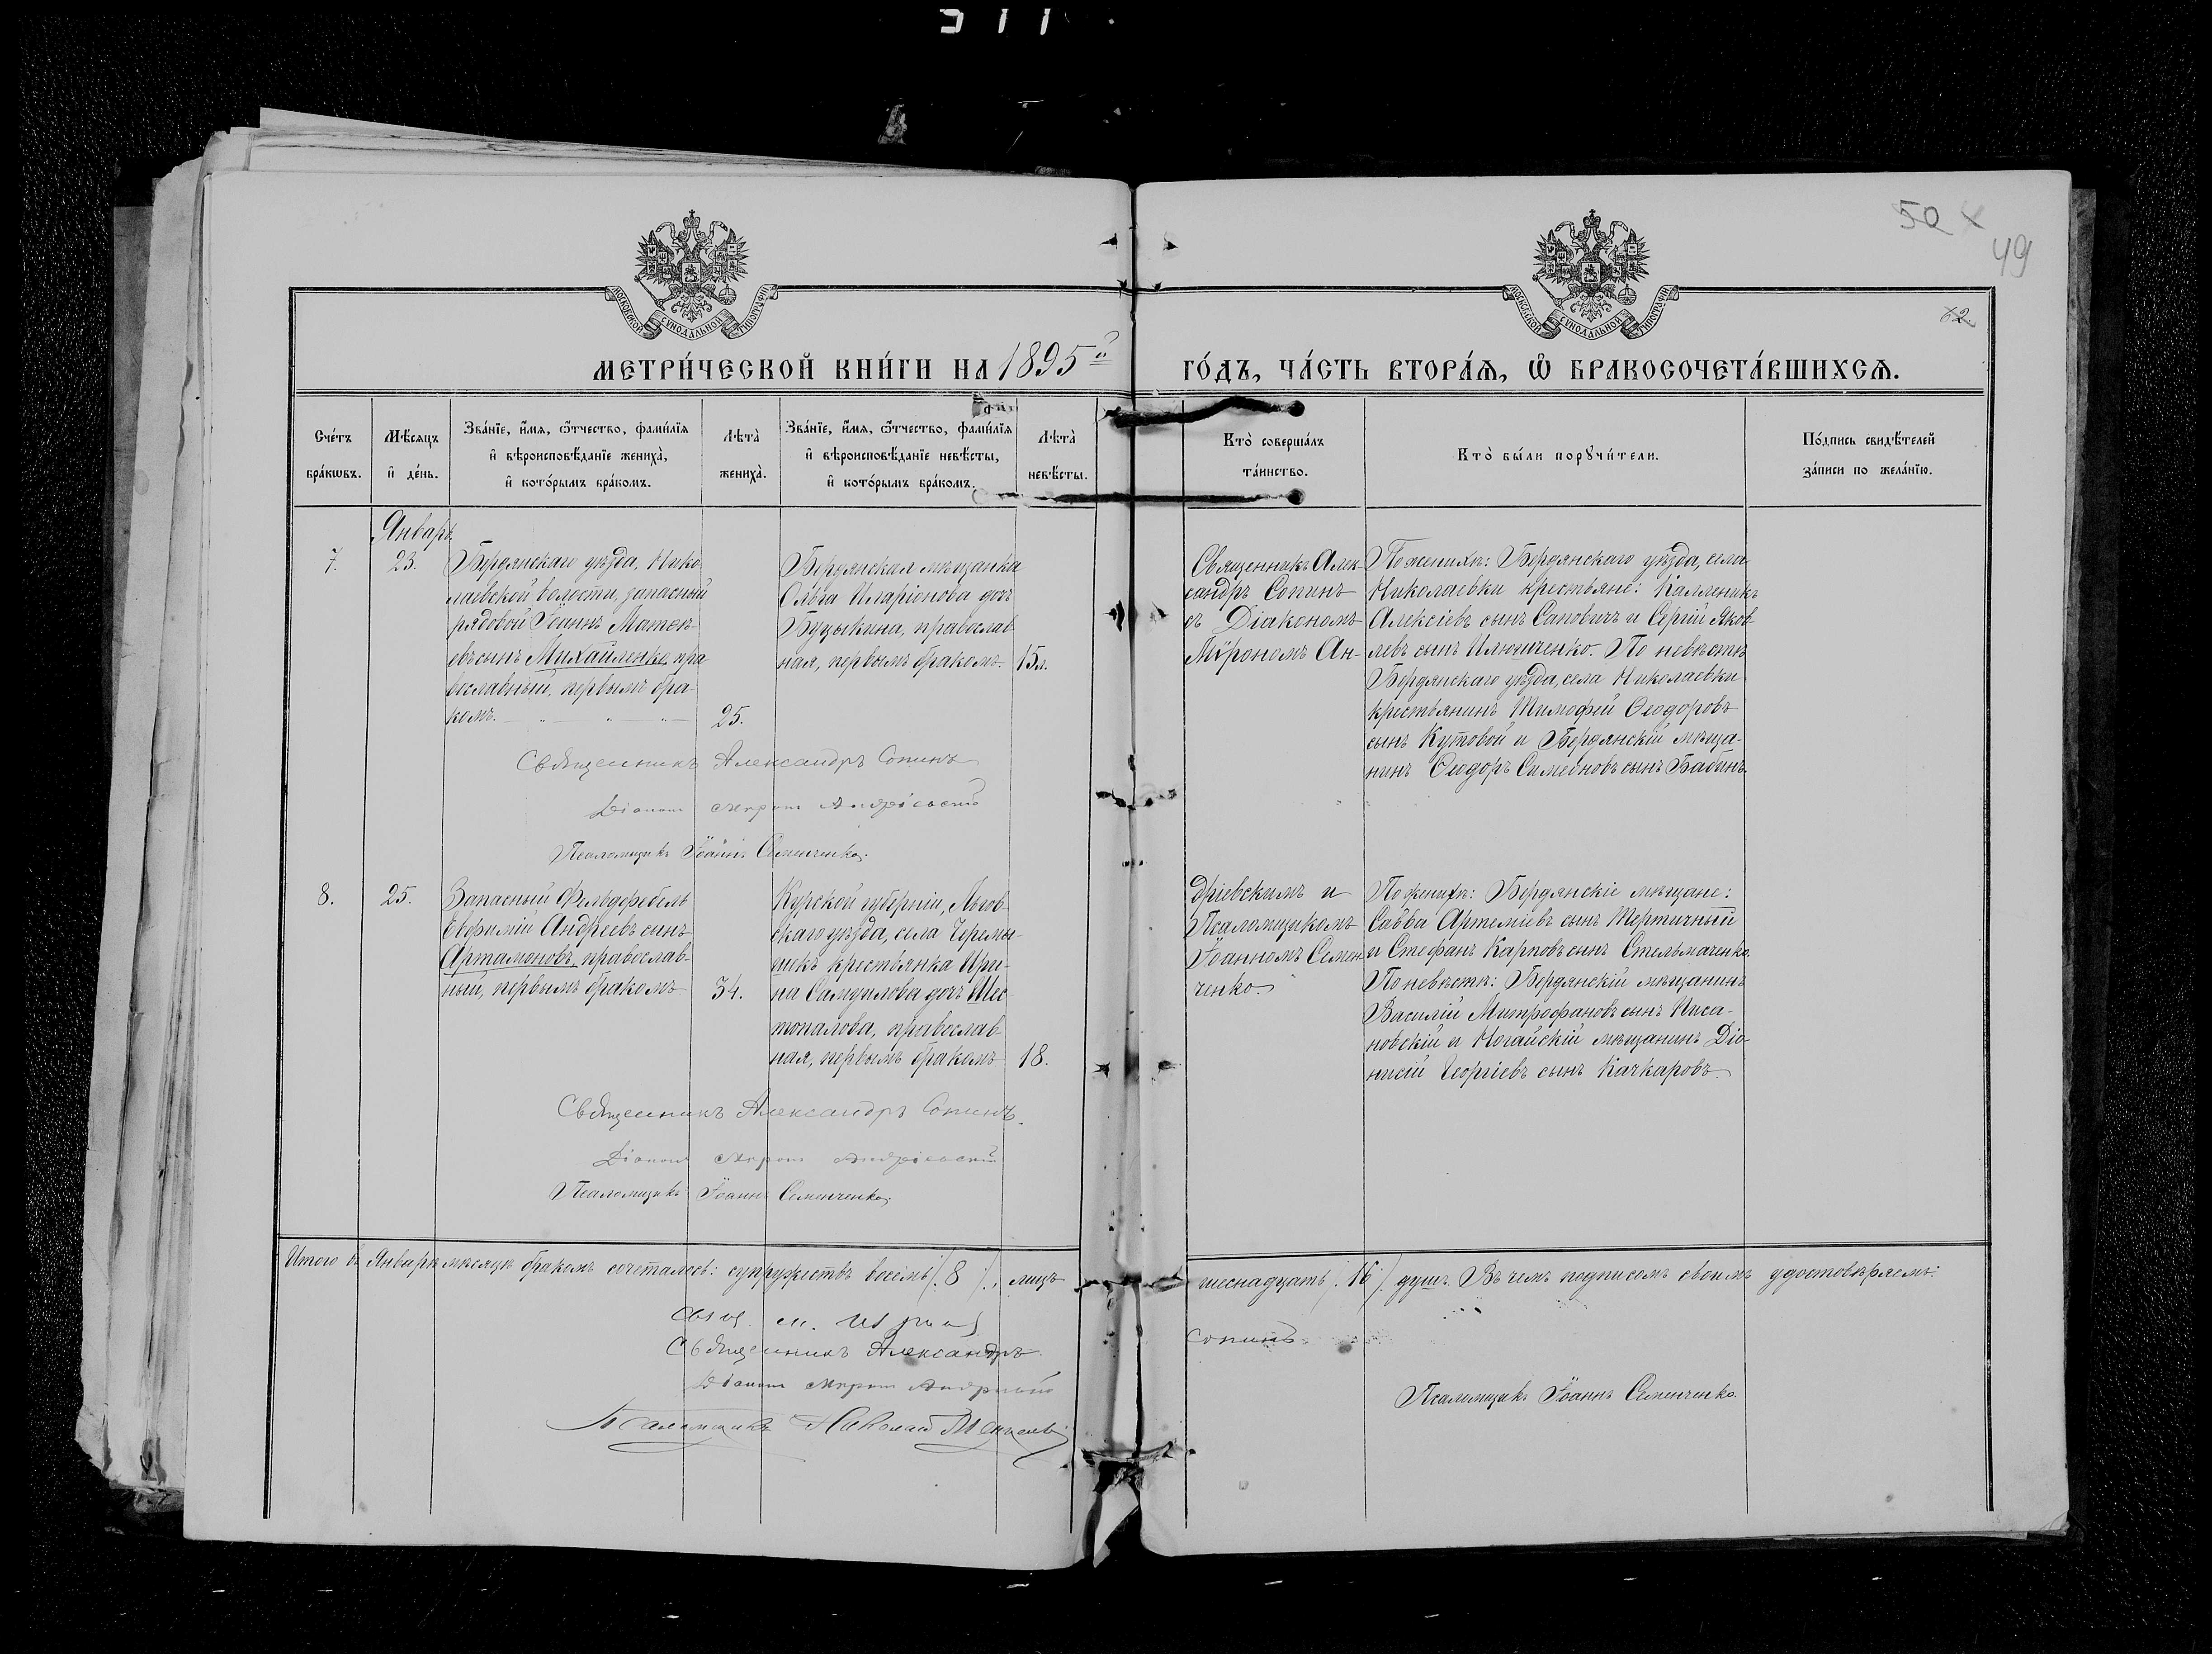 50
49
62.
МОСКОВСКОЙ СѴНОДАЛЬНОЙ ТИПОГРАФІИ
МОСКОВСКОЙ СѴНОДАЛЬНОЙ ТИПОГРАФІИ
МЕТРИ́ЧЕСКОЙ КНИ́ГИ НА 1895й ГО́ДЪ, ЧА́СТЬ ВТОРА́Ѧ, Ѡ҆ БРАКОСОЧЕТА́ВШИХСѦ.
Сче́тъ
бра́кѡвъ.
Мѣ́сяцъ
и҆ де́нь.
Зва́нїе, и҆́мя, ѻ҆́тчество, фами́лїя
и҆ вѣроисповѣ́данїе жениха̀,
и҆ кото́рымъ бра́комъ.
Лѣта̀
жениха̀.
Зва́нїе, и҆́мя, ѻ҆́тчество, фами́лїя
и҆ вѣроисповѣ́данїе невѣ́сты,
и҆ кото́рымъ бра́комъ.
Лѣта̀
невѣ́сты.
Кто̀ соверша́лъ
та́инство.
Кто̀ бы́ли порꙋчи́тели.
По́дпись свидѣ́телей
за́писи по жела́нїю.
Январь
7.
23.
Бердянскаго уѣзда, Нико-
лаевской волости, запасный
рядовой Іоаннъ Матѳѣ-
евъ сынъ Михайленко, пра-
вославный, первымъ бра-
комъ.
25.
Бердянская мѣщанка
Ольга Иларіонова дочь
Бузыкина, православ-
ная, первымъ бракомъ.
15л.
Священникъ Алек-
сандръ Сопинъ
съ Діакономъ
Мѵрономъ Ан-
По женихѣ: Бердянскаго уѣзда, села
Николаевки крестьяне: Каллиникъ
Алексіевъ сынъ Саповичъ и Сергій Яков-
левъ сынъ Илющченко. По невѣстѣ
Бердянскаго уѣзда, села Николаевки
крестьянинъ Тимофей Ѳеодоровъ
сынъ Кутовой и Бердянскій мѣща-
нинъ Ѳеодоръ Симеоновъ сынъ Бабинъ.
Священникъ Александръ Сопинъ
Діаконъ Миронъ Андріевскій
Псаломщикъ Іоаннъ Семенченко.
8.
25.
Запасный Фельдфебель
Евфимій Андреевъ сынъ
Артамоновъ, православ-
ный, первымъ бракомъ
34.
Курской губерніи, Льгов-
скаго уѣзда, села Черемо-
шекъ крестьянка Ири-
на Самуилова дочь Шес-
топалова, православ-
ная, первымъ бракомъ
18.
дріевскимъ и
Псаломщикомъ
Іоанномъ Семен-
ченко.
По женихѣ: Бердянскіе мѣщане:
Савва Артеміевъ сынъ Тертичный
и Стефанъ Карповъ сынъ Стельмаченко.
По невѣстѣ: Бердянскій мѣщанинъ
Василій Митрофановъ сынъ Писа-
новскій и Ногайскій мѣщанинъ Діо-
нисій Георгіевъ сынъ Качкаровъ.
Священникъ Александръ Сопинъ.
Діаконъ Миронъ Андріевскій
Псаломщикъ Іоаннъ Семенченко.
Итого въ Январѣ мѣсяцѣ бракомъ сочеталось: супружествъ восемь /.8./, лицъ шеснадцать /.16./ душъ. Въ чемъ подписомъ своимъ удостовѣряемъ:
Священникъ Александръ Сопинъ
Діаконъ Миронъ
Псаломщикъ Іоаннъ Семенченко.
Псаломщикъ Николай